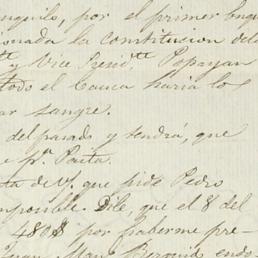 nquilo, por el primer buq
onada la constitucion del
y Vice Presid.te Popayan
todo el Cauca haria los
ar sangre.
del pasado y tendrá, que
e p.a Pasto.
ta de V. que pide Pedro
mposible. Dile, que el 8 del
480$ por haberme pre-
Juan Man.l Bermud endo-